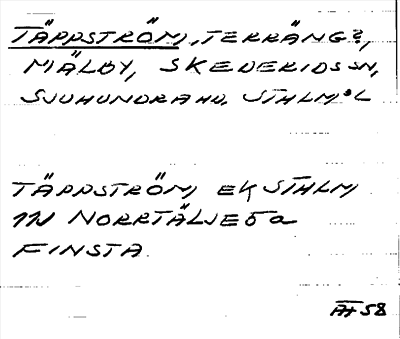 TÄPPSTRÖM, TERRÄNG?,
MÄLBY, SKEDERIDS SN,
SJUHUNDRA HD. STHLMS L
TÄPPSTRÖM, EK STHLM
11I NORRTÄLJE 5a
FINSTA
58